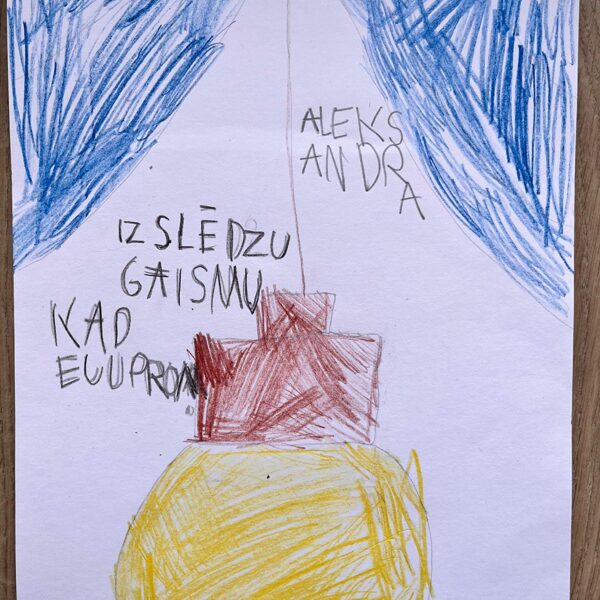 ALEKS
ANDRA
IZSLĒDZU
GAISMU
KAD
EUUPROM